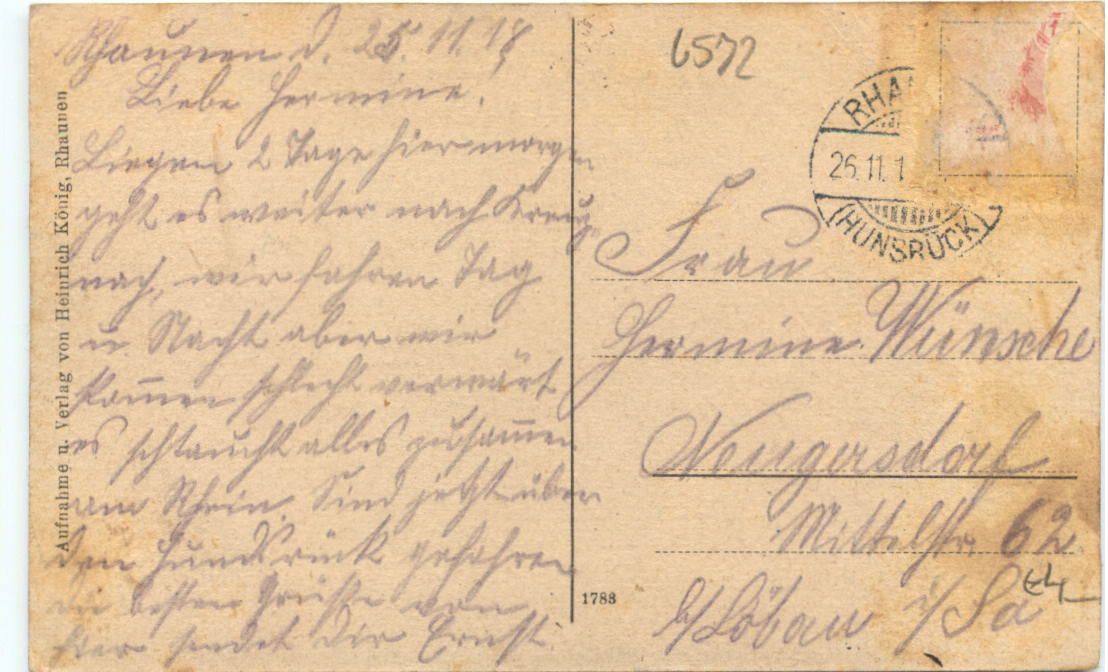 Rhaunen d. 25.11.18
Liebe Hermine!
Liegen 2 Tage hier morgen
geht es weiter nach Kreuz-
nach, wir fahren Tag
u. Nacht aber wir
kom̄en schlecht verwärt
es schtaucht alles zusam̄en
am Rhein. Sind jetzt über
den Hundsrück gefahren
die besten Grüße von
hier sendet dir Ernst.
Aufnahme u. Verlag von Heinrich König, Rhaunen
1783
6572
RHA
26.11.1
(HUNSRÜCK)
Frau
Hermine Wünsche
Neugersdorf
Mittelstr. 62
b/Löbau i/Sa